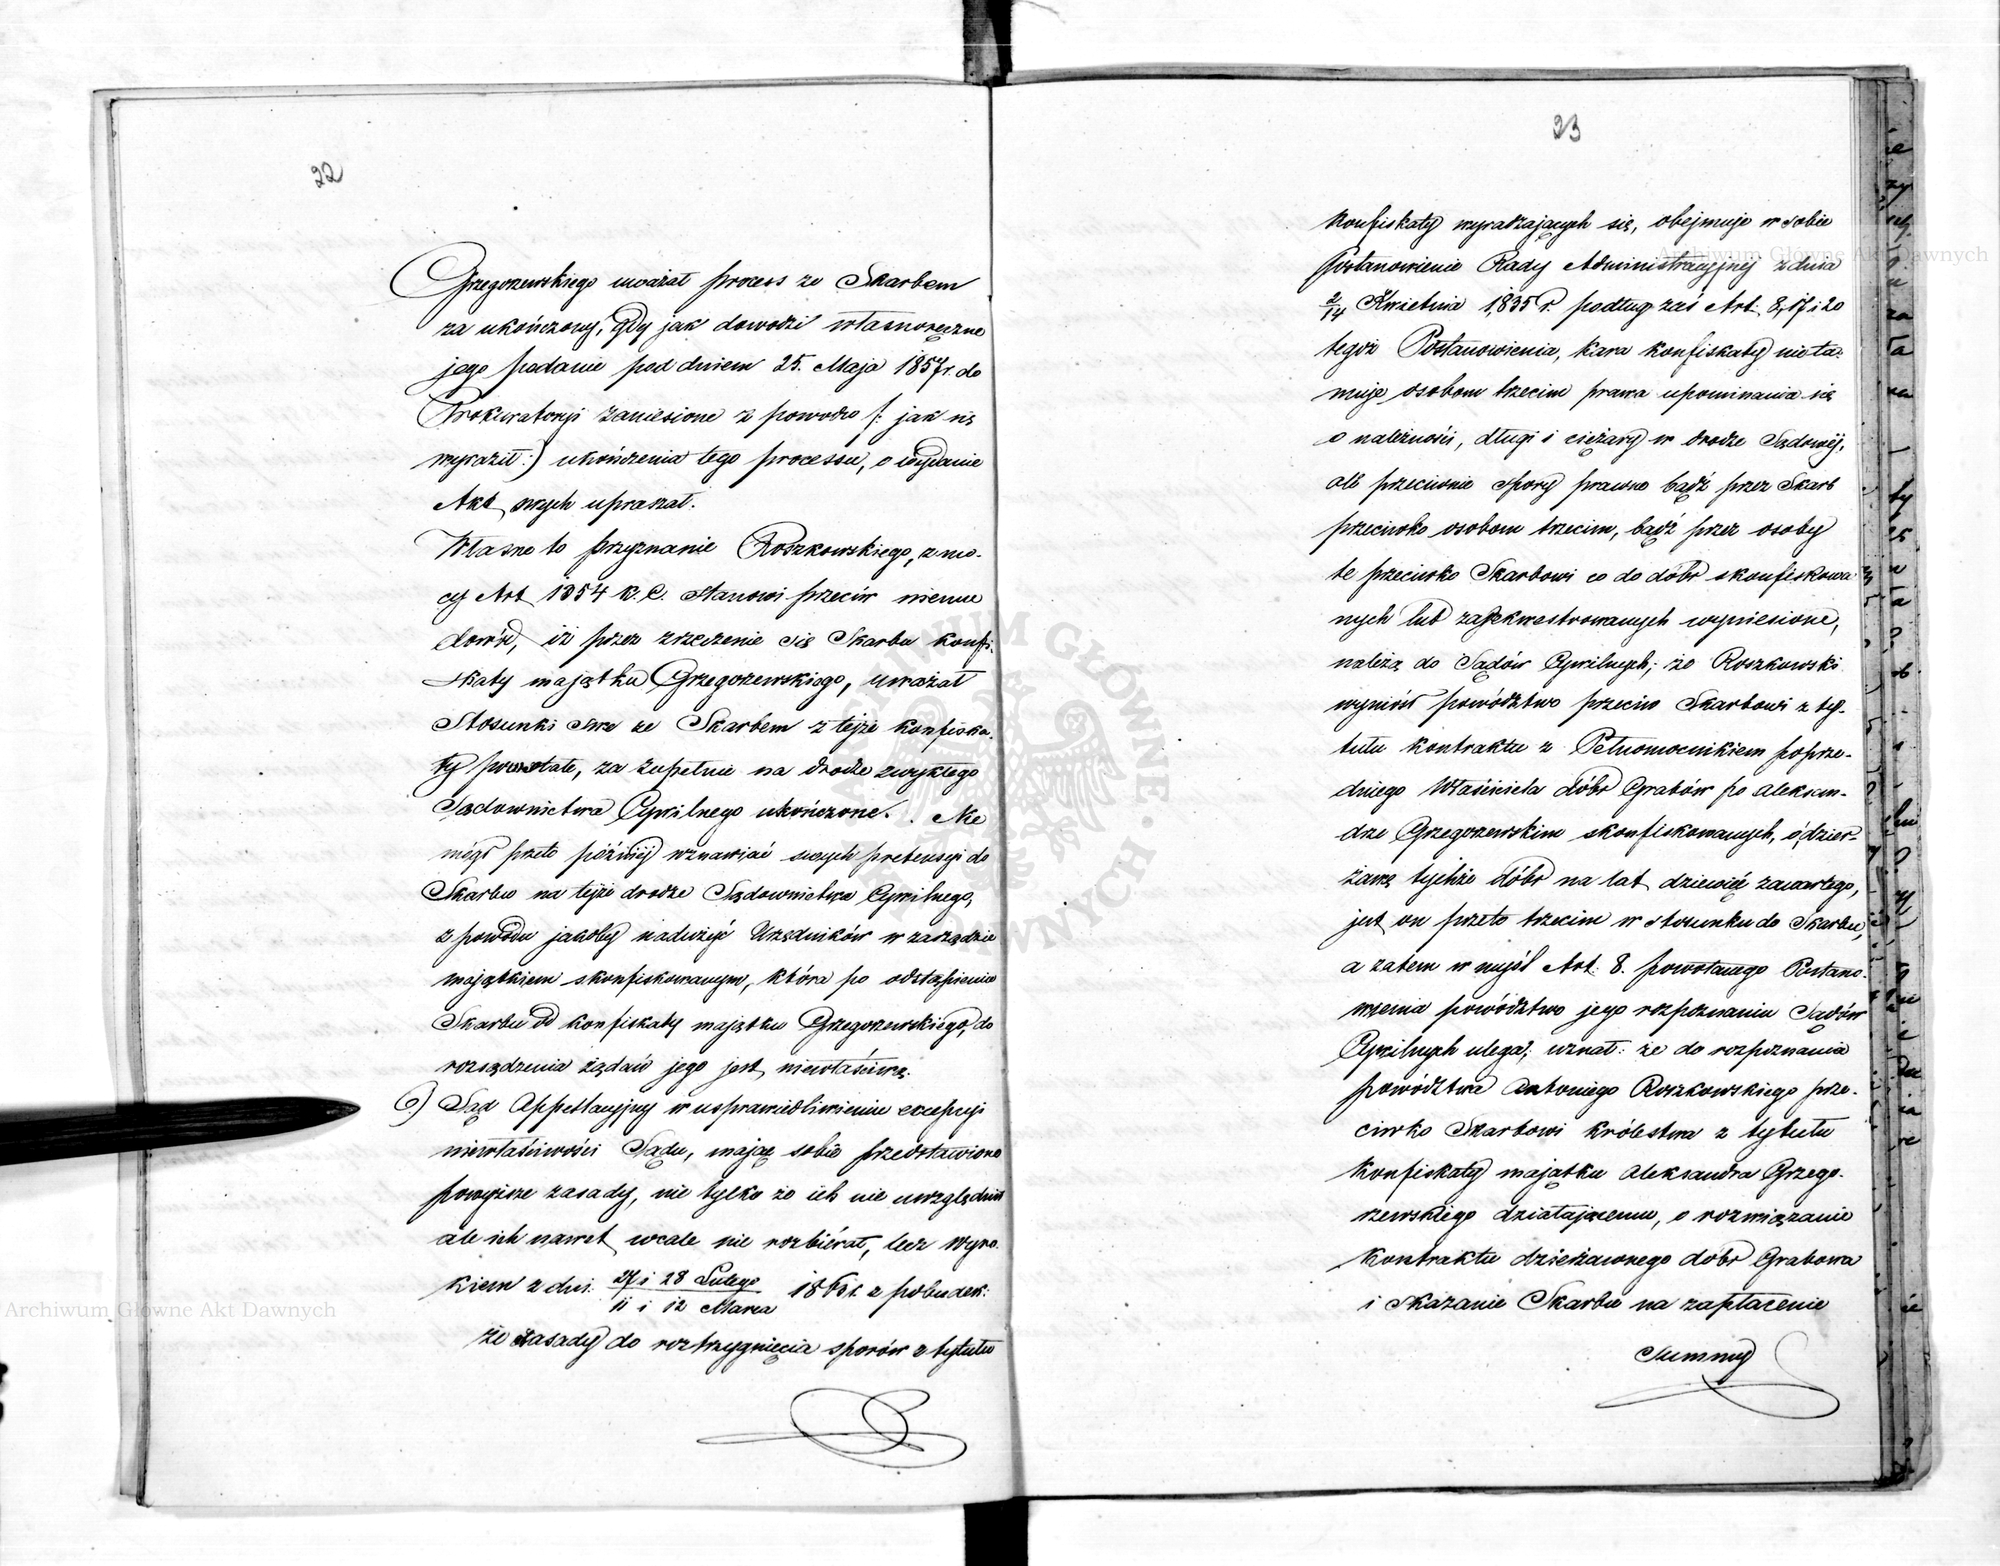 22
Grzegorzewskiego uważał process ze Skarbem
za ukończony, gdy jak dowodzi własnoręczne
jego podanie pod dniem 25. Maja 1857 r. do
Prokuratoryi zaniesione z powodu /: jak się
wyraził :) ukończenia tego processu, o wydanie
Akt swych upraszał.
Własne to przyznanie Roszkowskiego, z mo-
cy Art. 1354 K. C. stanowi przeciw niemu
dowód, iż przez zrzeczenie się Skarbu konfi-
skaty majątku Grzegorzewskiego, uważał
Stosunki swe ze Skarbem z tejże konfiska-
ty powstałe, za zupełnie na drodze zwykłego
Sądownictwa Cywilnego ukończone. Nie
mógł przeto później wznawiać swych pretensyi do
Skarbu na tejże drodze Sądownictwa Cywilnego,
z powodu jakoby nadużyć Urzędników w zarządzie
majątkiem skonfiskowanym, która po odstąpieniu
Skarbu od konfiskaty majątku Grzegorzewskiego, do
rozsądzenia żądań jego jest niewłaściwą.
6.) Sąd Appellacyjny w usprawiedliwieniu excepcyi
niewłaściwości Sądu, mając sobie przedstawione
powyższe zasady, nie tylko że ich nie uwzględnił
ale ich nawet wcale nie rozbierał, lecz wyro-
kiem z dni 27 i 28 Lutego / 11 i 12 Marca 1861 r. z pobudek:
że zasady do roztrzygnięcia sporów z tytułu
23
Konfiskaty wyradzających się, obejmuje w sobie
Postanowienie Rady Administracyjnej z dnia
2/14 Kwietnia 1835 r. podług zaś Art. 8, 17 i 20
tegoż Postanowienia, kara konfiskaty nie ta-
muje osobom trzecim prawa upominania się
o należności, długi i ciężary w drodze Sądowéj,
ale przeciwnie spory prawne bądź przez Skarb
przeciwko osobom trzecim, bądź przez osoby
te przeciwko Skarbowi co do dóbr skonfiskowa
nych lub zasekwestrowanych wyniesione,
należą do Sądów Cywilnych; że Roszkowski
wyniósł powództwo przeciw Skarbowi z ty-
tułu kontraktu z Pełnomocnikiem poprze-
dniego Właściciela dóbr Grabów po Aleksan-
drze Grzegorzewskim skonfiskowanych, o dzier-
żawę tychże dóbr na lat dziewięć zawartego,
jest on przeto trzecim w stosunku do Skarbu,
a zatem w myśl Art: 8. powołanego Postano-
wienia powództwo jego rozpoznaniu Sądów
Cywilnych ulega; uznał: że do rozpoznania
powództwa Antoniego Roszkowskiego prze-
ciwko Skarbowi Królestwa z tytułu
Konfiskaty majątku Aleksandra Grzego-
rzewskiego działającemu, o rozwiązanie
kontraktu dzierżawnego dóbr Grabowa
i skazanie Skarbu na zapłacenie
Summy
Archiwum Główne Akt Dawnych
Archiwum Główne Akt Dawnych